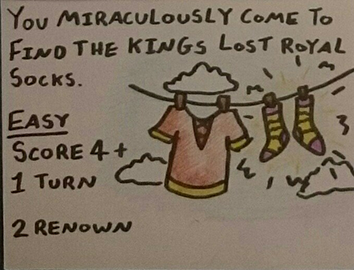 You MIRACULOUSLY COME TO
FIND THE KINGS LOST ROYAL
SOCKS.
EASY
SCORE 4+
1 TURN
2 RENOWN